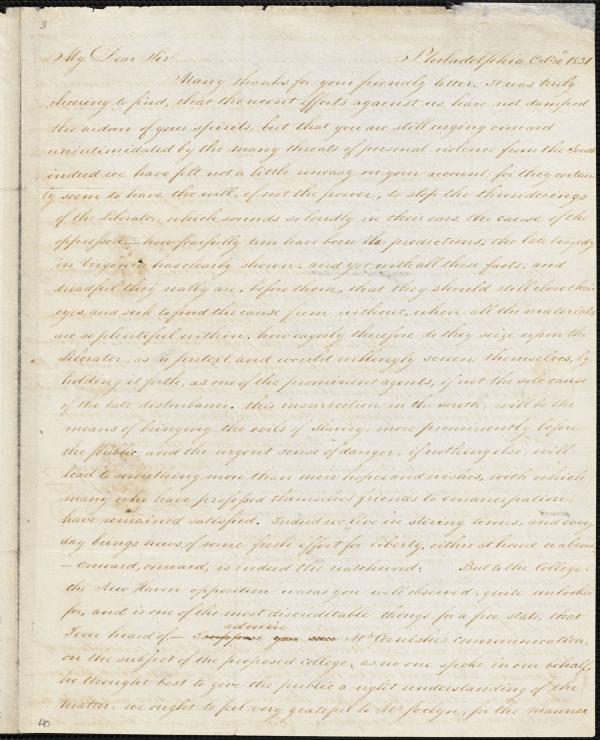 31
My Dear Sir. Philadelphia Oct 20 1831
Many thanks for your friendly letter. It was truly
chearing to find, that the recent efforts against us, have not damped
the ardour of your spirits, but that you are still urging onward
unintimidated by the many threats of personal violence from the South
indeed we have felt not a little uneasy on your account, for they certain
ly seem to have the will, if not the power, to stop the thunderings
of the Liberator, which sounds so loudly in their ears, the cause of the
oppressed. – how fearfully true have been its predictions, the late tragedy
in Virginia has clearly shewn. and yet with all these facts, and
dreadful they really are, before them, that they should still close their
eyes, and seek to find the cause from without, when all the materials
are so plentiful within, how eagerly therefore do they seize upon the
Liberator, as a pretext and would willingly screen themselves, by
holding it forth, as one of the prominent agents, if not the sole cause
of the late disturbance. this insurrection in the south, will be the
means of bringing the evils of slavery, more prominently before
the public, and the urgent sense of danger, if nothing else, will
lead to something more than mere hopes and wishes, with which
many who have professed themselves friends to emancipation,
have remained satisfied. Indeed we live in stirring times, and every
day brings news of some fresh effort for liberty, either at home or abroad
– onward, onward, is indeed the watchword: But to the College.
the New Haven opposition was as you well observed, quite unlooked
for, and is one of the most discreditable things for a free state, that
I ever heard of – I admire Mr Cornish's communication,
on the subject of the proposed college, as no one spoke in our behalf,
he thought best to give the public a right understanding of the
matter. we ought to feel very grateful to Mr Jocelyn, for the manner
40